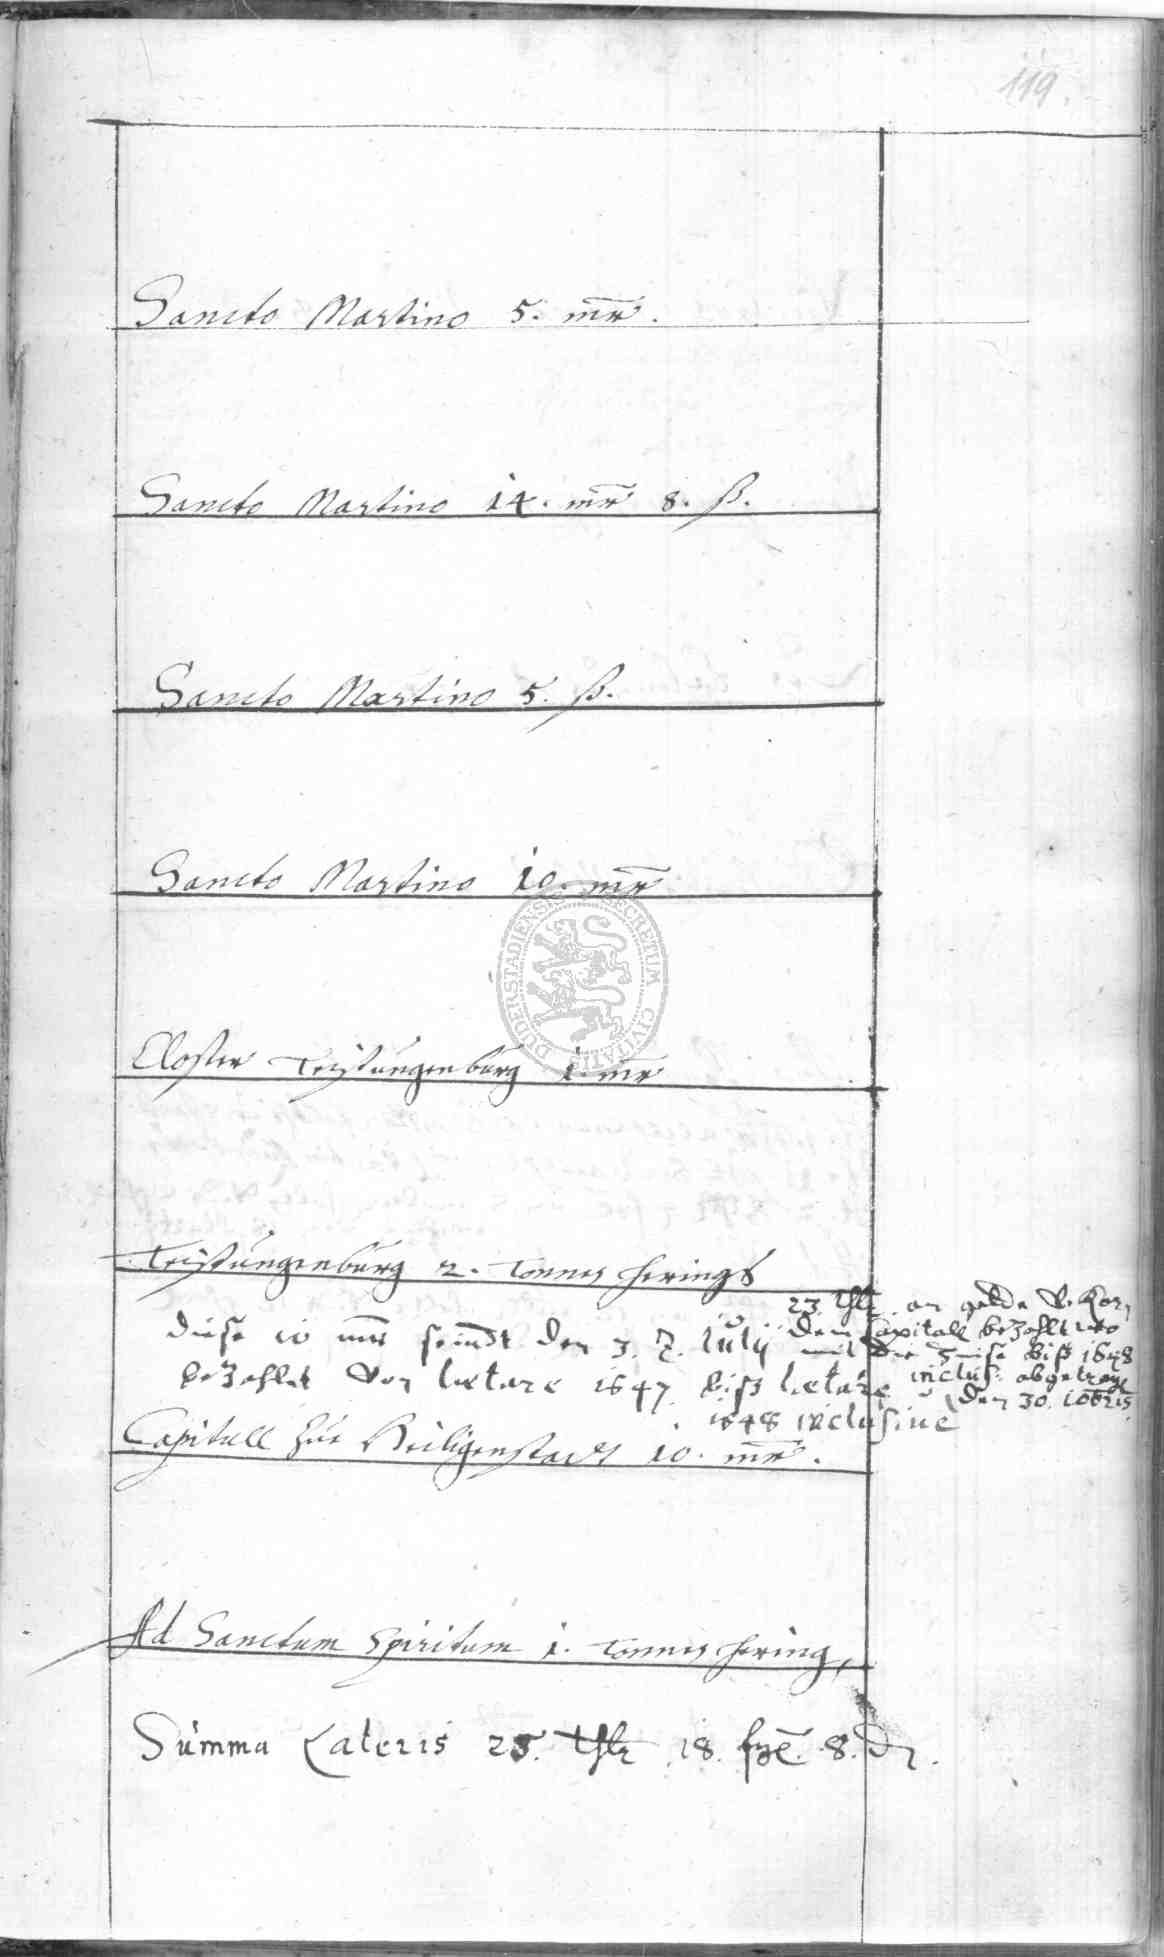 119.
Sancto Martino 5. mr.
Sancto Martino 14. mr 8. ß.
Sancto Martino 5. ß.
Sancto Martino 10. mr
SECRETUM CIVITATIS DUDERSTADIENSIS
Closter Teistungenburg 1. mr
Teistungenburg 2. Tonnen herings
23. thlr. an gelde
diese 10 mr seindt den 3. July
dem Capitall bezahlt
mit biß 1648
bezahlet von lætare 1647 biß lætare
inclus: abgetragen
1648 inclusiue
den 30. 10bris
Capitull zue Heiligenstadt 10. mr.
Ad Sanctum Spiritum 1. Tonnen hering,
Summa Lateris 25. thlr 18. 8. d.